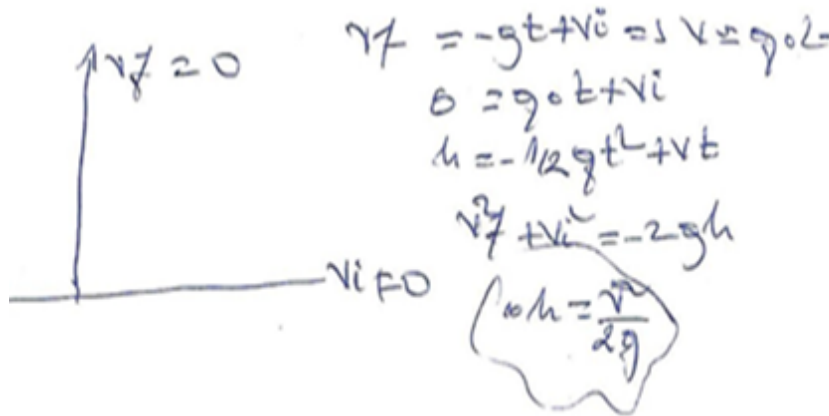 vf = 0
vf = -gt+vi => v = g.t
0 = g.t+vi
h = -1/2 gt²+vt
v²f +vi² = -2gh
vi≠0
∞h = v²/2g